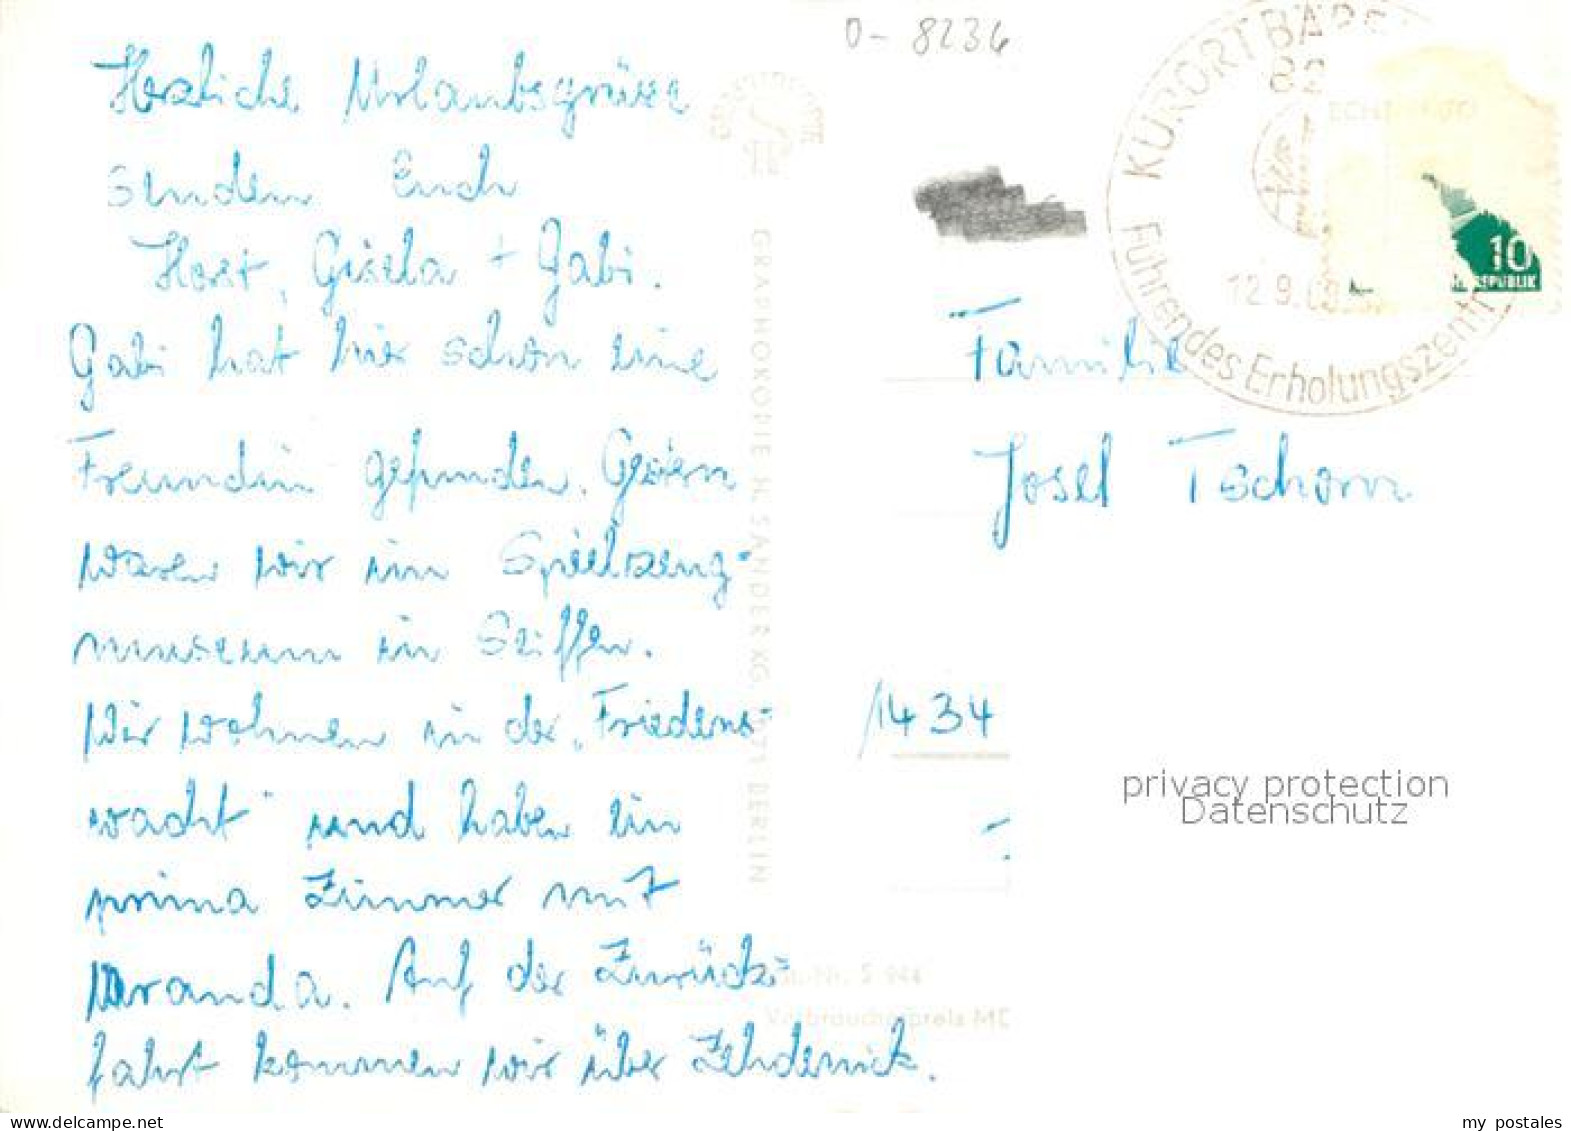 O - 8236
KURORT BÄRE
82
Führendes Erholungszentr
12.9.
10
REPUBLIK
Herzliche Urlaubsgrüsse
senden Euch
Horst, Gisela + Gabi.
Gabi hat hier schon eine
Freundin gefunden. Gestern
waren wir im Spielzeug-
museum in Seiffen.
Wir wohnen in der „Friedens-
wacht" und haben ein
prima Zimmer mit
Veranda. Auf der Zurück-
fahrt kommen wir über Zehdenick.
GRAPHOKOPIE H. SANDER KG. 1071 BERLIN
Familie
Josef Tschorn
1434
privacy protection
Datenschutz
S 944
Verbraucherpreis MD
my postales